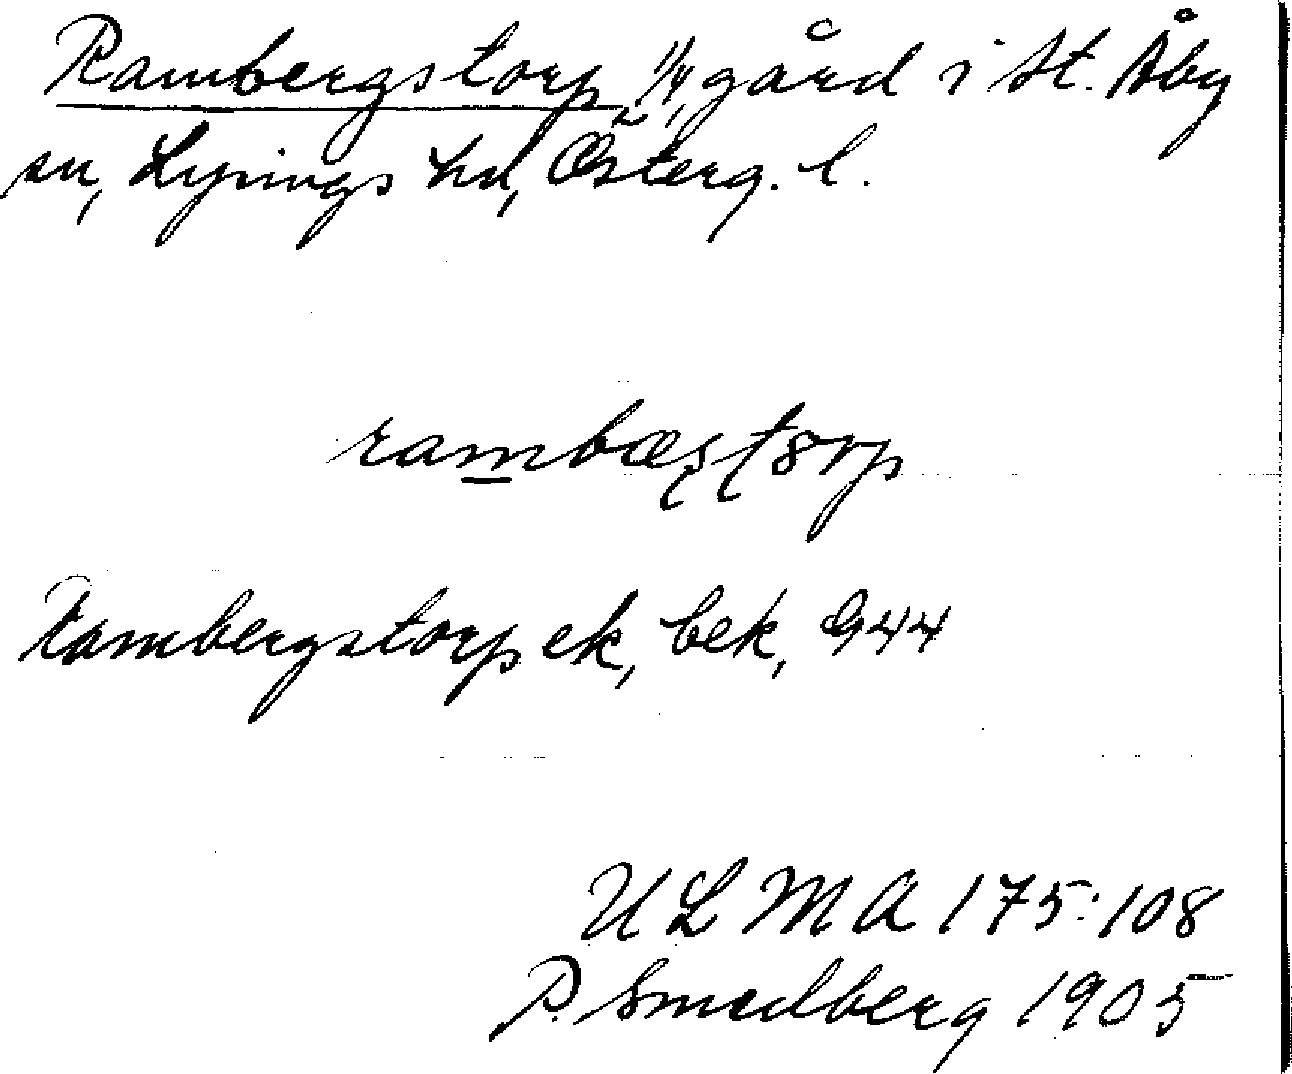 Rambergstorp, 1/4 gård i St. Åby
sn, Lysings hd, Österg. l.
rambæstorp
Rambergstorp ek, bek, 944
ULMA 175:108
P. Smedberg 1905